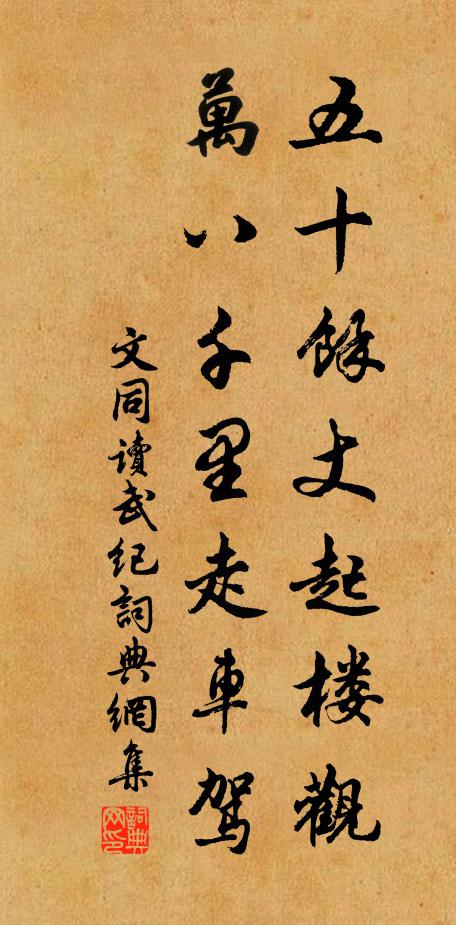 五十餘丈起楼觀
萬八千里走車駕
文同讀武紀詞典網集
詞典网印